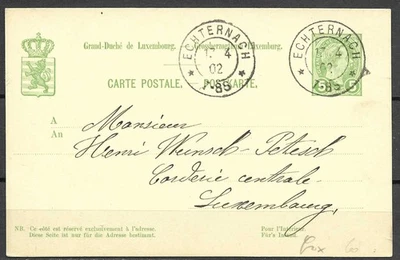 Grand-Duché de Luxembourg. Grossherzogtum Luxemburg.
CARTE POSTALE. POSTKARTE.
* ECHTERNACH *
17 4
02
7-8S
* ECHTERNACH *
4
02
5 5
A
An
Monsieur
Henri Wunsch-Petesch
Corderie centrale
Luxembourg.
NB. Ce côté est exclusivement réservé à l'adresse.
Diese Seite ist nur für die Adresse bestimmt.
Pour l'Intérieur.
Für's Inland.